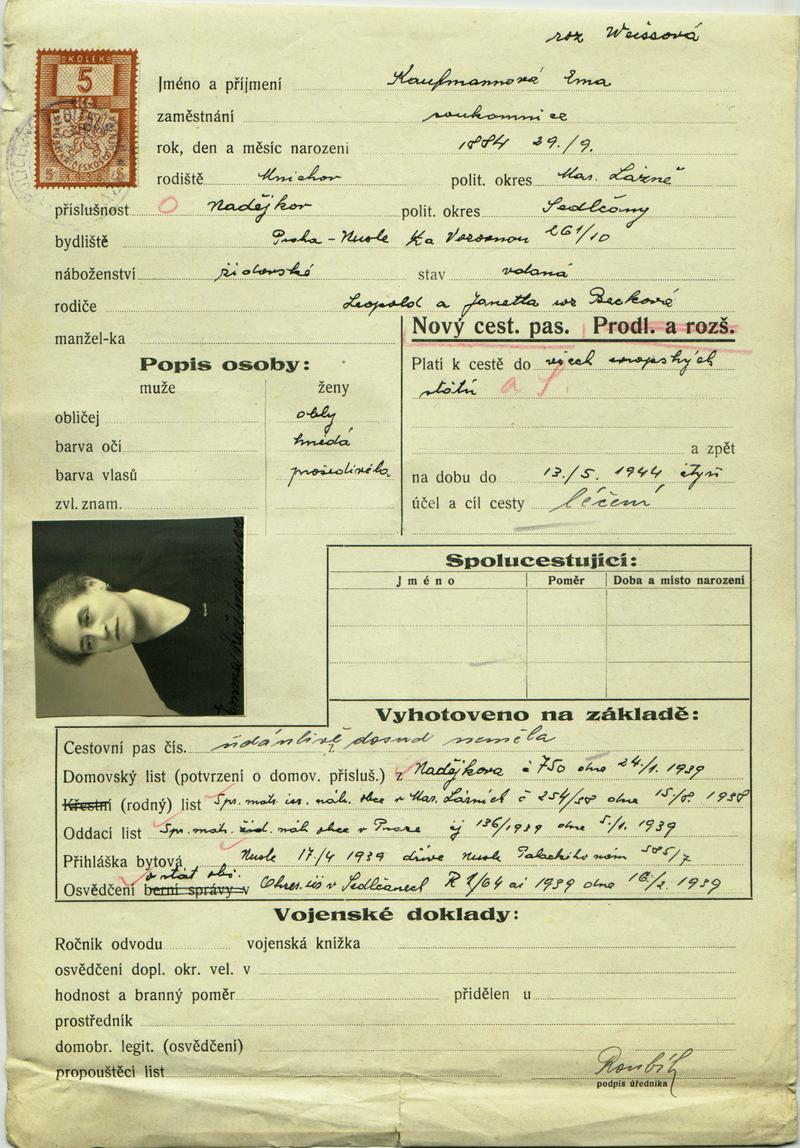 roz Weissová
KOLEK
5
Kč
Jméno a příjmení Kaufmannová Ema
zaměstnání soukromnice
rok, den a měsíc narození 1884 29./9.
rodiště Mnichov polit. okres Mar. Lázně
příslušnost O Nadějkov polit. okres Sedlčany
bydliště Praha - Nusle Na Vozovnou 261/10
náboženství židovské stav vdaná
rodiče Leopold a Janetta roz Becková
manžel-ka
Nový cest. pas. Prodl. a rozš.
Popis osoby:
Platí k cestě do všech evropských
muže ženy
států a
obličej oblý
barva očí hnědá
a zpět
barva vlasů prošedivělá
na dobu do 13./5. 1944 čtyř
zvl. znam.
účel a cíl cesty léčení
Spolucestující:
Jméno Poměr Doba a místo narození
Emma Kaufmannová
Vyhotoveno na základě:
Cestovní pas čís. údánlivě dosud neměla
Domovský list (potvrzení o domov. přísluš.) z Nadějkova č 750 dne 24./1. 1939
Křestní (rodný) list Spr. mat. isr. náb. obce v Mar. Lázních č 254/38 dne 15/8. 1938
Oddací list Spr. mat. žid. náb obce v Praze čj 136/1939 dne 5./1. 1939
Přihláška bytová Nusle 17/4 1939 dříve Nusle Palackého nám 585/7
o stát obč.
Osvědčení berní správy v Okres. úř v Sedlčanech R 1/64 ai 1939 dne 16/2. 1939
Vojenské doklady:
Ročník odvodu vojenská knížka
osvědčení dopl. okr. vel. v
hodnost a branný poměr přidělen u
prostředník
domobr. legit. (osvědčení)
propouštěcí list
Roubík
podpis úředníka